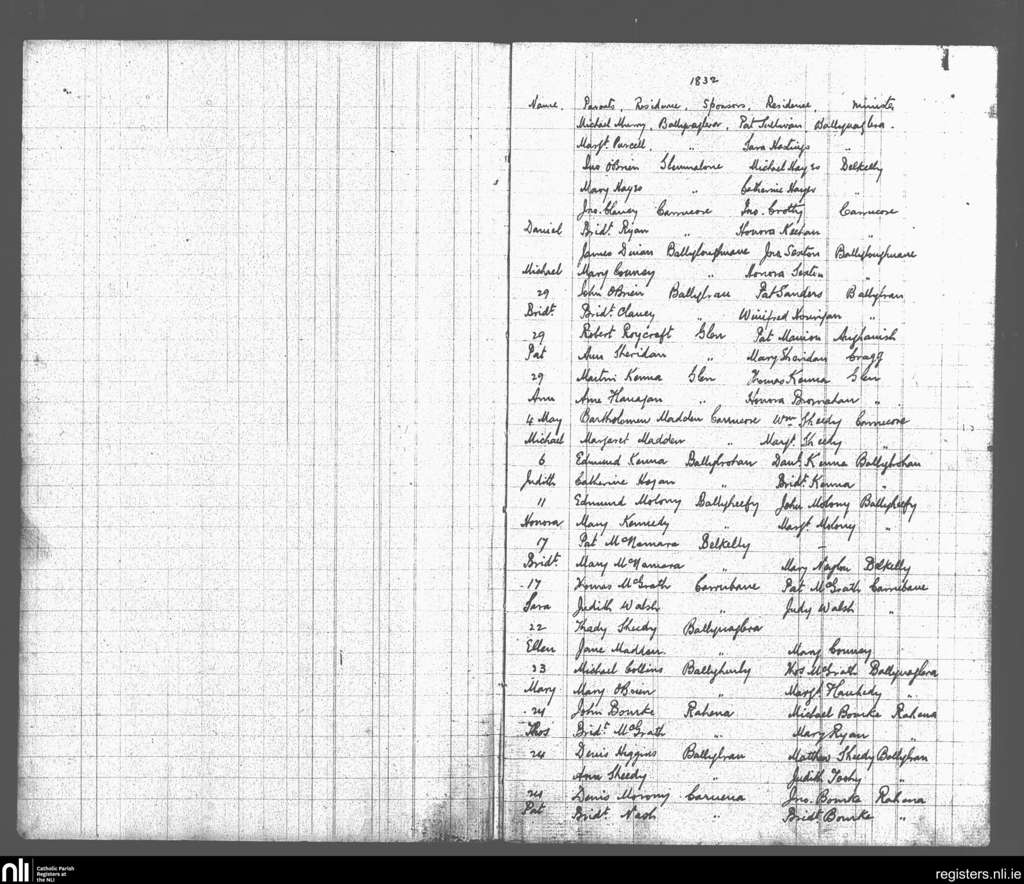 1832
Name. Parents. Residence. Sponsors. Residence. Minister
Michael Murry. Ballynaglera. Pat Sullivan Ballynaglera.
Margt. Purcell. " Sara Hastings "
Jno OBrien Glenmalone Michael Hayes Delkelly
Mary Hayes " Catherine Hayes "
Jno. Clancy Carnicore Jno. Crotty Carnicore
Daniel Bridt. Ryan " Honora Keehan "
James Ballyloughnane Jno Sexton Ballyloughnane
Michael Mary Conney " Honora Sexton "
29 John OBrien Ballybran Pat Sanders Ballybran
Bridt. Bridt. Clancy " Winifred "
29 Robert Roycroft Glen Pat Manion Aughanish
Pat Ann Sheridan " Mary Sheridan Cragg
29 Martin Kenna Glen Thomas Kenna Glen
Ann Ann Flanagan " Honora Brosnahan "
4 May Bartholomew Madden Carnicore Wm Sheedy Carnicore
Michael Margaret Madden " Margt. Sheedy "
6 Edmund Kenna Ballybrohan Danl. Kenna Ballybrohan
Judith Catherine Hogan " Bridt. Kenna "
11 Edmund Molony Ballykeefy John Molony Ballykeefy
Honora Mary Kennedy " Margt. Molony "
17 Pat McNamara Delkelly –
Bridt. Mary McNamara " Mary Naylon Delkelly
17 Thomas McGrath Carrubane Pat McGrath Carrubane
Sara Judith Walsh " Judy Walsh "
22 Thady Sheedy Ballynaglera
Ellen Jane Madden " Mary Conney "
23 Michael Collins Thos McGrath Ballynaglera
Mary Mary OBrien " Margt "
24 John Bourke Rahena Michael Bourke Rahena
Thos Bridt McGrath " Mary Ryan "
24 Denis Higgins Ballybran Matthew Sheedy Ballybran
Ann Sheedy " Judith "
24 Denis Morony Jno. Bourke Rahena
Pat Bridt. Nash " Bridt Bourke "
nli Catholic Parish
Registers at
the NLI
registers.nli.ie